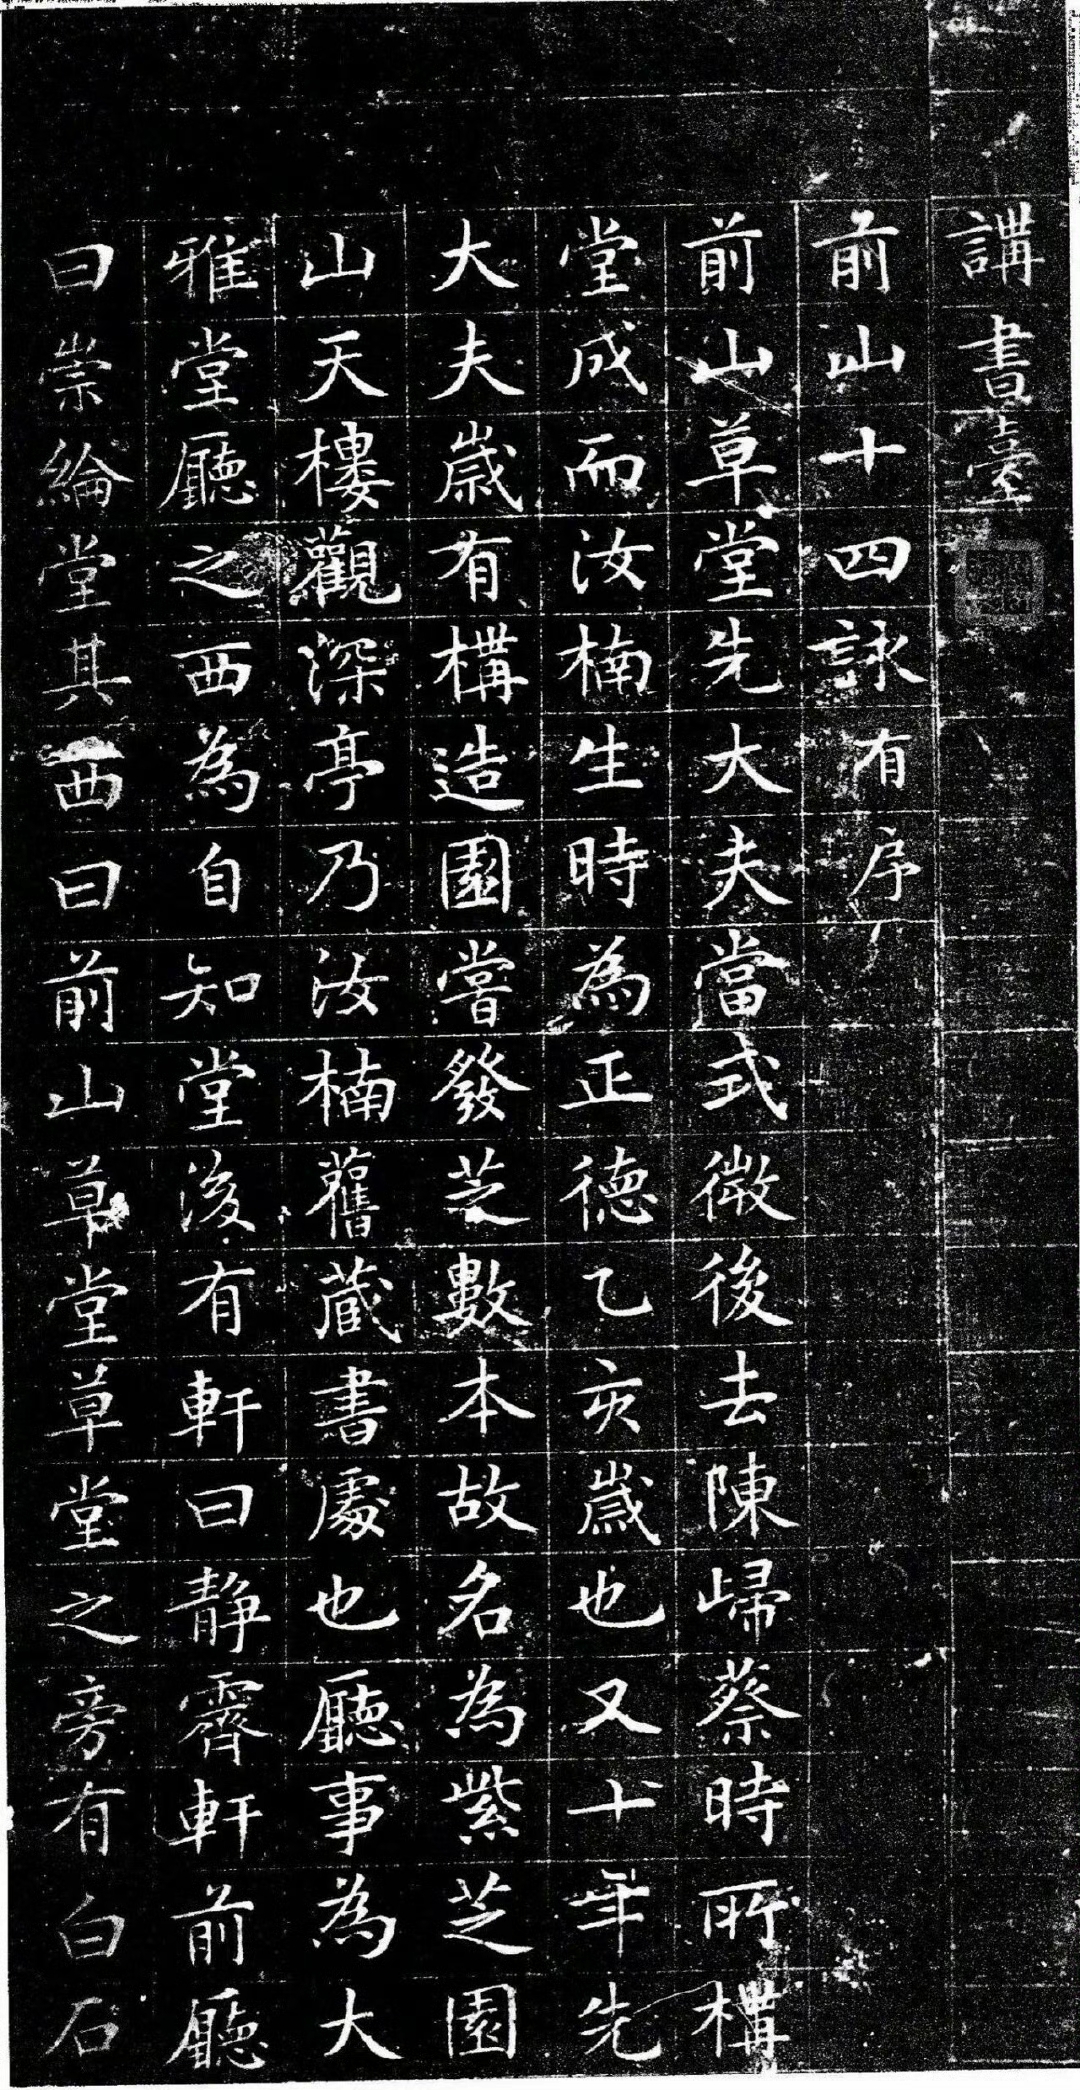 講書臺
前山十四詠有序
前山草堂先大夫當弍徵後去陳歸蔡時所構
堂成而汝楠生時為正德乙亥歲也又十年先
大夫歲有構造園嘗發芝數本故名為紫芝園
山天樓觀深亭乃汝楠舊蔵書處也廳事為大
雅堂廳之西為自知堂後有軒曰靜齋軒前廳
曰崇綸堂其西曰前山草堂草堂之旁有白石